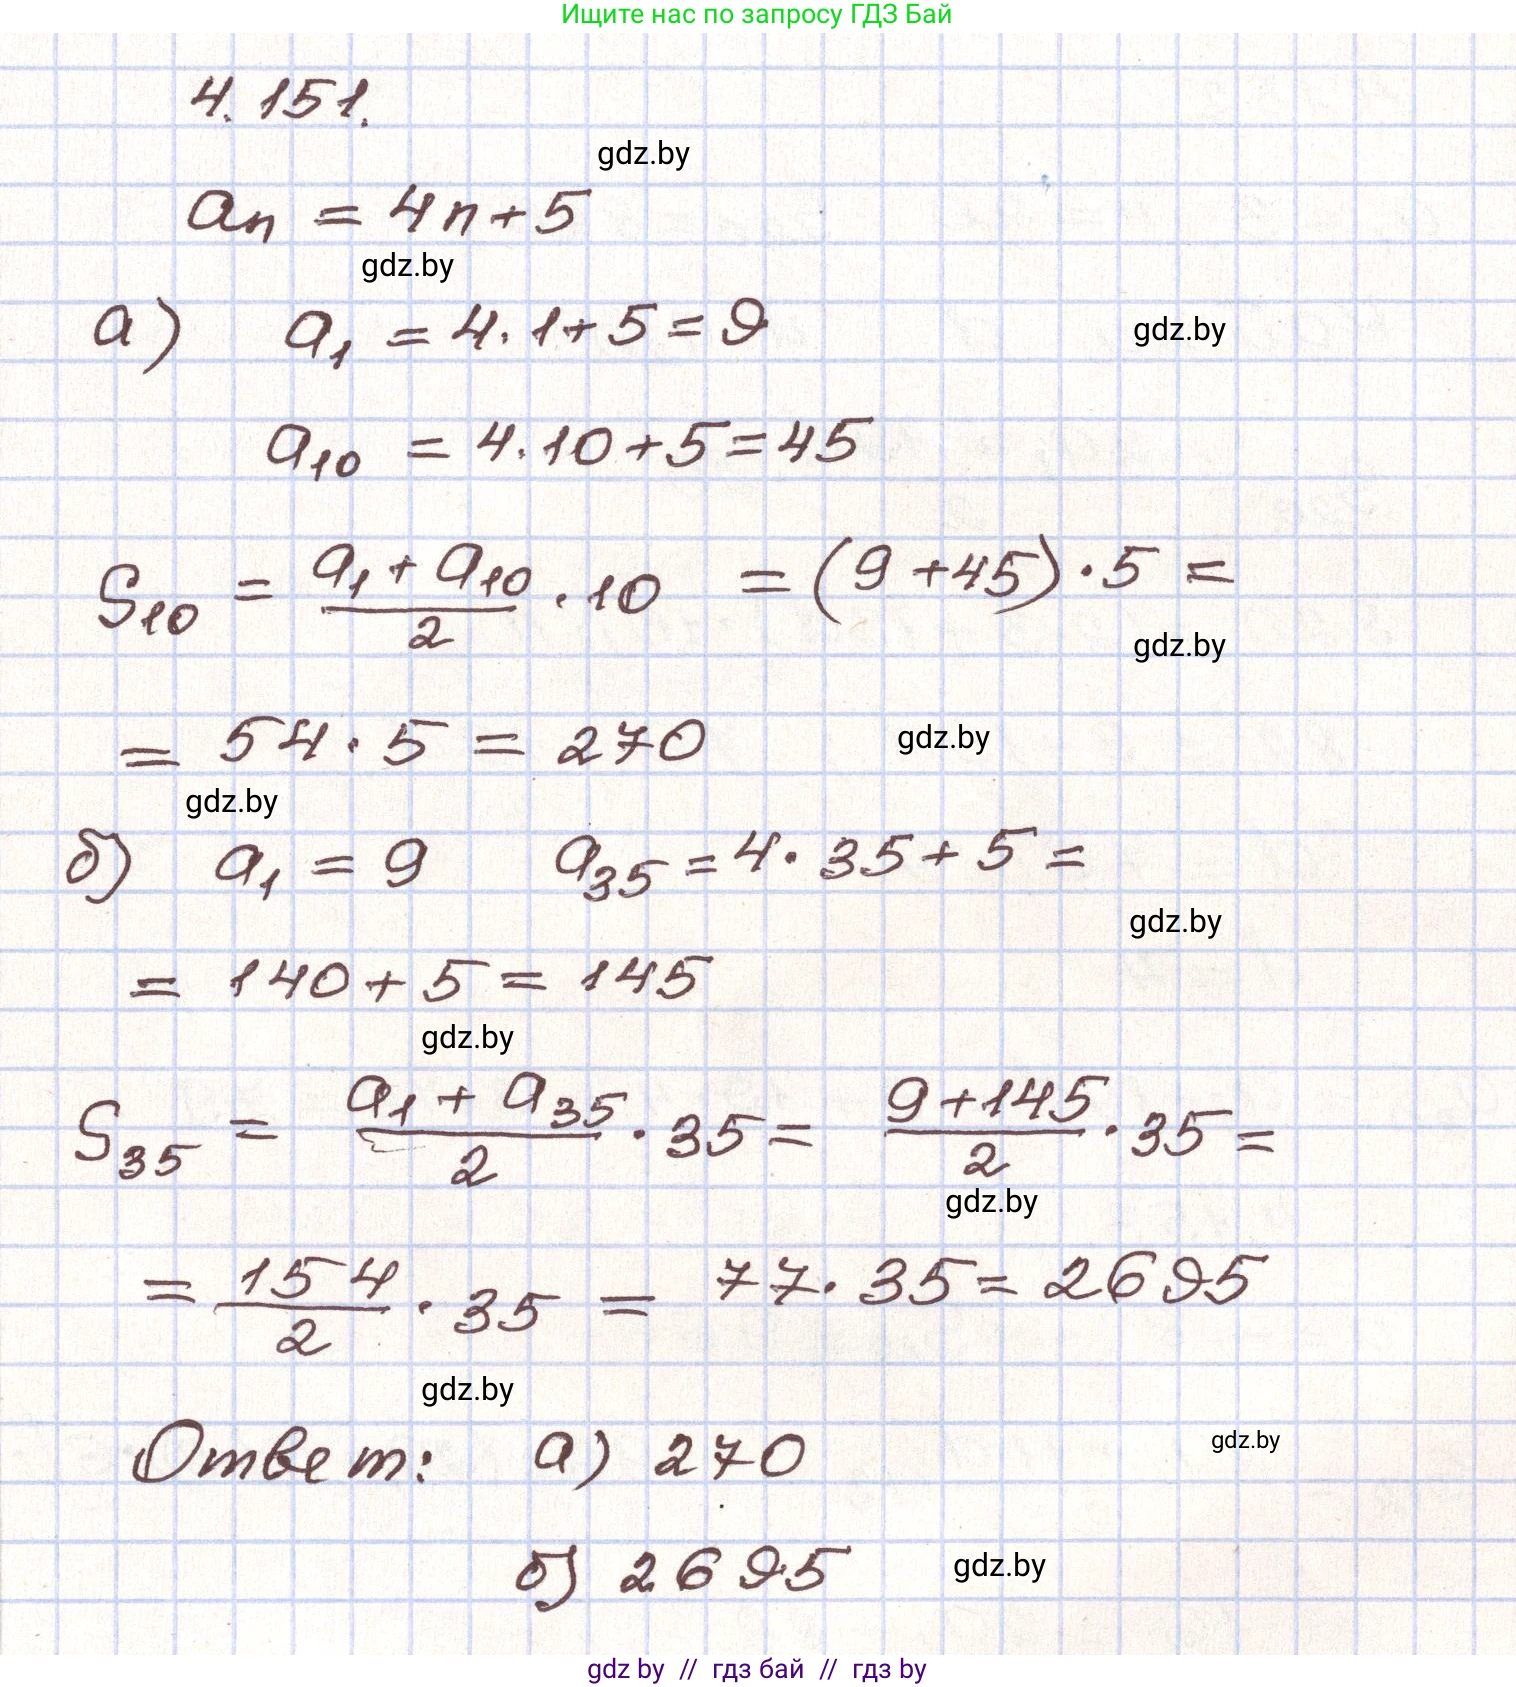 Ищите нас по запросу ГДЗ Бай
4.151.
gdz.by
aₙ = 4n+5
gdz.by
а) a₁ = 4·1+5=9
gdz.by
a₁₀ = 4·10+5=45
S₁₀ = (a₁ + a₁₀)/2 · 10 = (9+45)·5 =
gdz.by
= 54·5 = 270
gdz.by
gdz.by
б) a₁ = 9 a₃₅ = 4·35+5 =
gdz.by
= 140+5 = 145
gdz.by
S₃₅ = (a₁ + a₃₅)/2 · 35 = (9+145)/2 · 35 =
gdz.by
= 154/2 · 35 = 77·35 = 2695
gdz.by
Ответ: а) 270
gdz.by
б) 2695
gdz.by
gdz by // гдз бай // гдз by